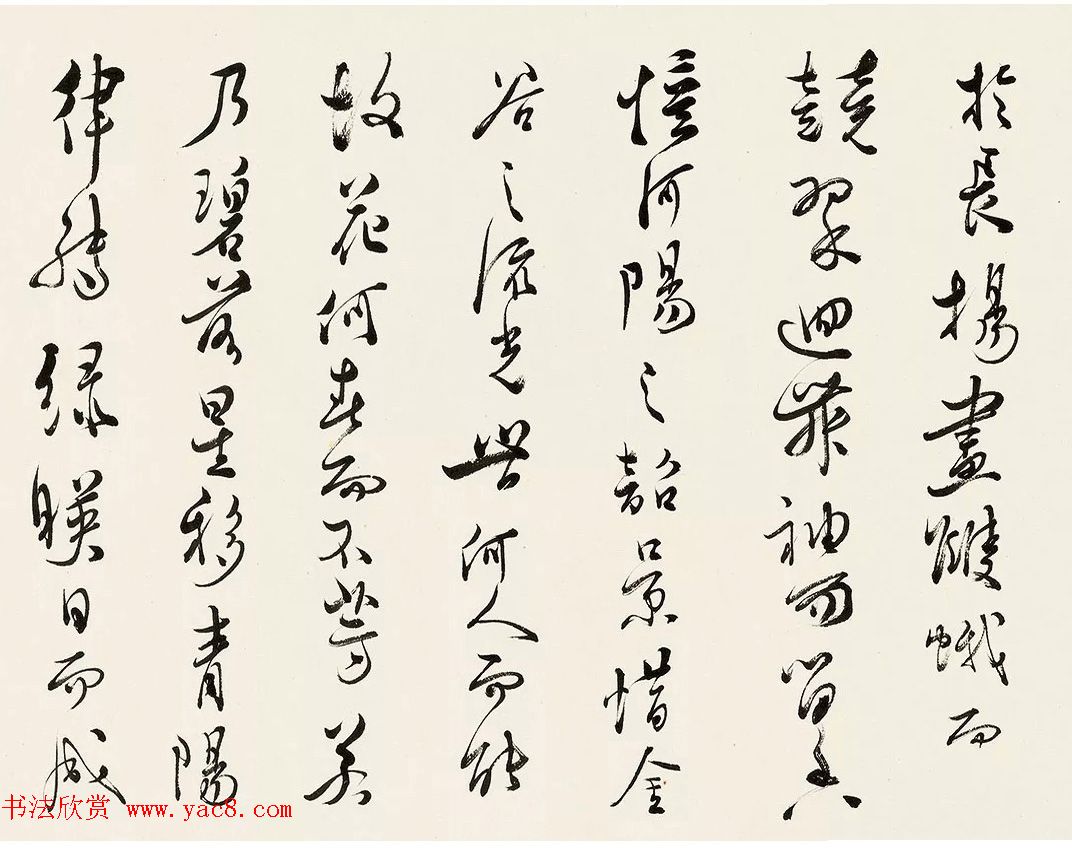 於長楊畫雙蛾而
競翠迴舞袖而留香
憶河陽之韶景惜金
谷之流光世何人而能
故花何春而不芳若
乃碧落星移青陽
律轉綠暎日而成
书法欣赏 www.yac8.com